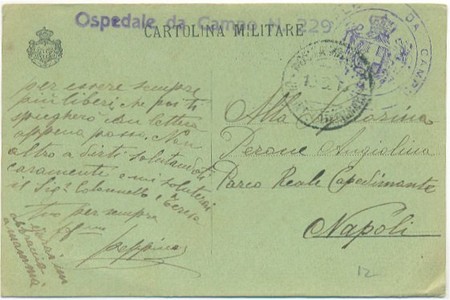 Ospedale da Campo N. 229
CARTOLINA MILITARE
DA CAMPO
per essere sempre
più liberi, che poi ti
spiegherò con lettera
appena posso. Non
altro a dirti salutandoti
caramente e mi saluterai
il Sig. Colonnello e Teresa
tuo per sempre
Peppino
Alla Signorina
Perone Angiolina
Parco Reale Capodimonte
Napoli
12